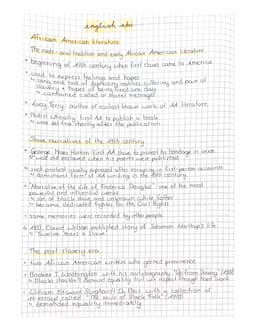 english abi
African American literature
The roots - oral tradition and early African American literature
• beginning of 17th century when first slaves came to America
• used to express feelings and hopes
→ songs and tales of depressing realities, suffering and pain of
slavery + hopes of being freed one day
→ contained coded or hidden messages
• Lucy Terry: author of earliest known work of AA literature
• Phillis Wheatley first AA to publish a book
→ was set free shortly after the publication
Slave narratives of the 19th century
• George Moses Horton first AA slave to protest his bondage in verse
→ was still enslaved when his poems were published
• such protests usually expressed after escaping in first-person accounts
→ dominant form of AA writing in the 19th century
• "Narrative of the Life of Frederick Douglass" one of the most
powerful and influential works
→ son of black slave and unknown white father
→ became dedicated fighter for the Civil Rights
• some memories were recorded by other people
↳ 1853 David Wilson published story of Solomon Northup's life
→ "Twelve Years a Slave"
The post slavery era
• two African American writers who gained prominence
• Booker T. Washington with his autobiography "Up from Slavery" (1901)
→ blacks shouldn't demand equality but win respect through hard work
• William Edward Burghardt Du Bois with a collection of
essays called "The Souls of Black Folk" (1903)
→ demanded equality immediately